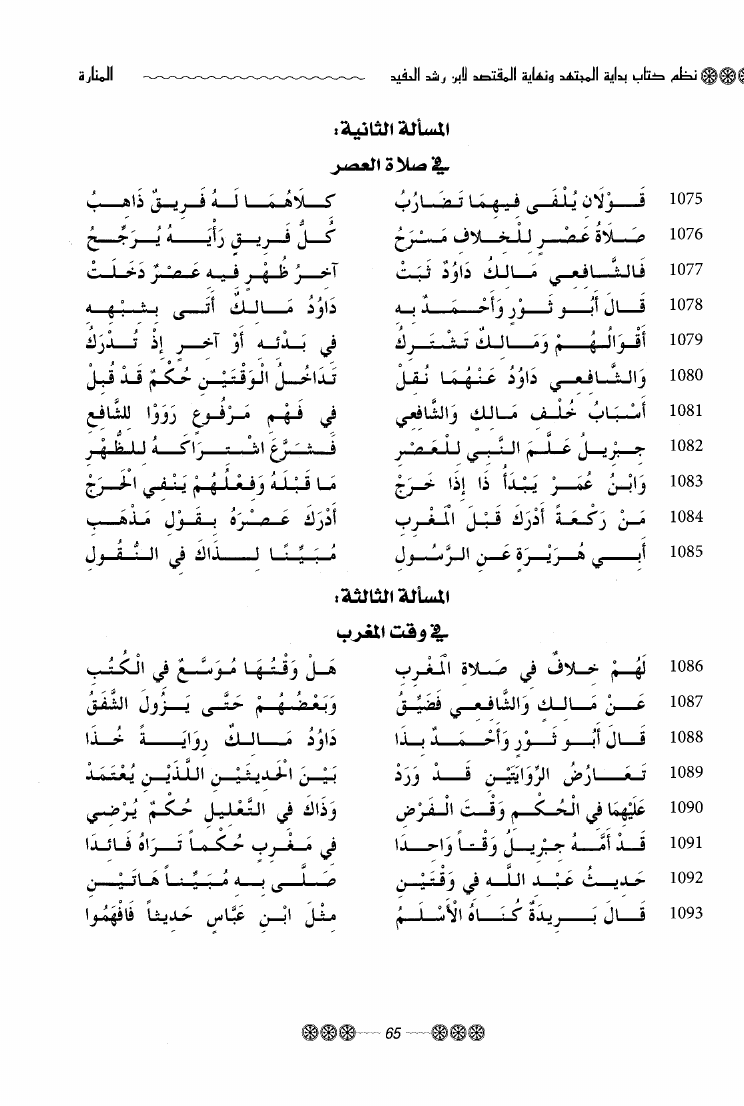 نظم كتاب بداية المجتهد ونهاية المقتصد لابن رشد الحفيد المنارة
المسألة الثانية:
في صلاة العصر
1075 قَوْلَانِ يُلْفَى فِيهِمَا تَضَارُبُ كِلَاهُمَا لَهُ فَرِيقٌ ذَاهِبُ
1076 صَلَاةُ عَصْرٍ لِلْخِلَافِ مَسْرَحُ كُلُّ فَرِيقٍ رَأْيَهُ يُرَجِّحُ
1077 فَالشَّافِعِي مَالِكُ دَاوُدُ ثَبَتْ آخِرُ ظُهْرٍ فِيهِ عَصْرٌ دَخَلَتْ
1078 قَالَ أَبُو ثَوْرٍ وَأَحْمَدُ بِهِ دَاوُدُ مَالِكٌ أَتَى بِشِبْهِهِ
1079 أَقْوَالُهُمْ وَمَالِكُ تَشْتَرِكُ فِي بَدْئِهِ أَوْ آخِرٍ إِذْ تُدْرَكُ
1080 وَالشَّافِعِي دَاوُدُ عَنْهُمَا نُقِلْ تَدَاخُلُ الْوَقْتَيْنِ حُكْمٌ قَدْ قُبِلْ
1081 أَسْبَابُ خُلْفِ مَالِكَ وَالشَّافِعِي فِي فَهْمِ مَرْفُوعٍ رَوَوْا لِلشَّافِعِ
1082 جِبْرِيلُ عَلَّمَ النَّبِي لِلْعَصْرِ فَشَرَّعَ اشْتِرَاكَهُ لِلظُّهْرِ
1083 وَابْنُ عُمَرْ يَبْدَأُ ذَا إِذَا خَرَجْ مَا قَبْلَهُ وَفِعْلُهُمْ يَنْفِي الْحَرَجْ
1084 مَنْ رَكْعَةً أَدْرَكَ قَبْلَ الْمَغْرِبِ أَدْرَكَ عَصْرَهُ بِقَوْلِ مَذْهَبِ
1085 أَبِي هُرَيْرَةَ عَنِ الرَّسُولِ مُبَيِّنًا لِذَاكَ فِي النُّقُولِ
المسألة الثالثة:
في وقت المغرب
1086 لَهُمْ خِلَافٌ فِي صَلَاةِ الْمَغْرِبِ هَلْ وَقْتُهَا مُوَسَّعٌ فِي الْكُتُبِ
1087 عَنْ مَالِكَ وَالشَّافِعِي فَضَيِّقُ وَبَعْضُهُمْ حَتَّى يَزُولَ الشَّفَقُ
1088 قَالَ أَبُو ثَوْرٍ وَأَحْمَدُ بِذَا دَاوُدُ مَالِكٌ رِوَايَةً خُذَا
1089 تَعَارُضُ الرِّوَايَتَيْنِ قَدْ وَرَدْ بَيْنَ الْحَدِيثَيْنِ اللَّذَيْنِ يُعْتَمَدْ
1090 عَلَيْهِمَا فِي الْحُكْمِ وَقْتَ الْفَرْضِ وَذَاكَ فِي التَّعْلِيلِ حُكْمٌ يُرْضِي
1091 قَدْ أَمَّهُ جِبْرِيلُ وَقْتًا وَاحِدًا فِي مَغْرِبٍ حُكْمًا تَرَاهُ فَائِدَا
1092 حَدِيثُ عَبْدِ اللَّهِ فِي وَقْتَيْنِ صَلَّى بِهِ مُبَيِّنًا هَاتَيْنِ
1093 قَالَ بَرِيدَةُ كُنَاهُ الْأَسْلَمُ مِثْلَ ابْنِ عَبَّاسٍ حَدِيثًا فَافْهَمُوا
65